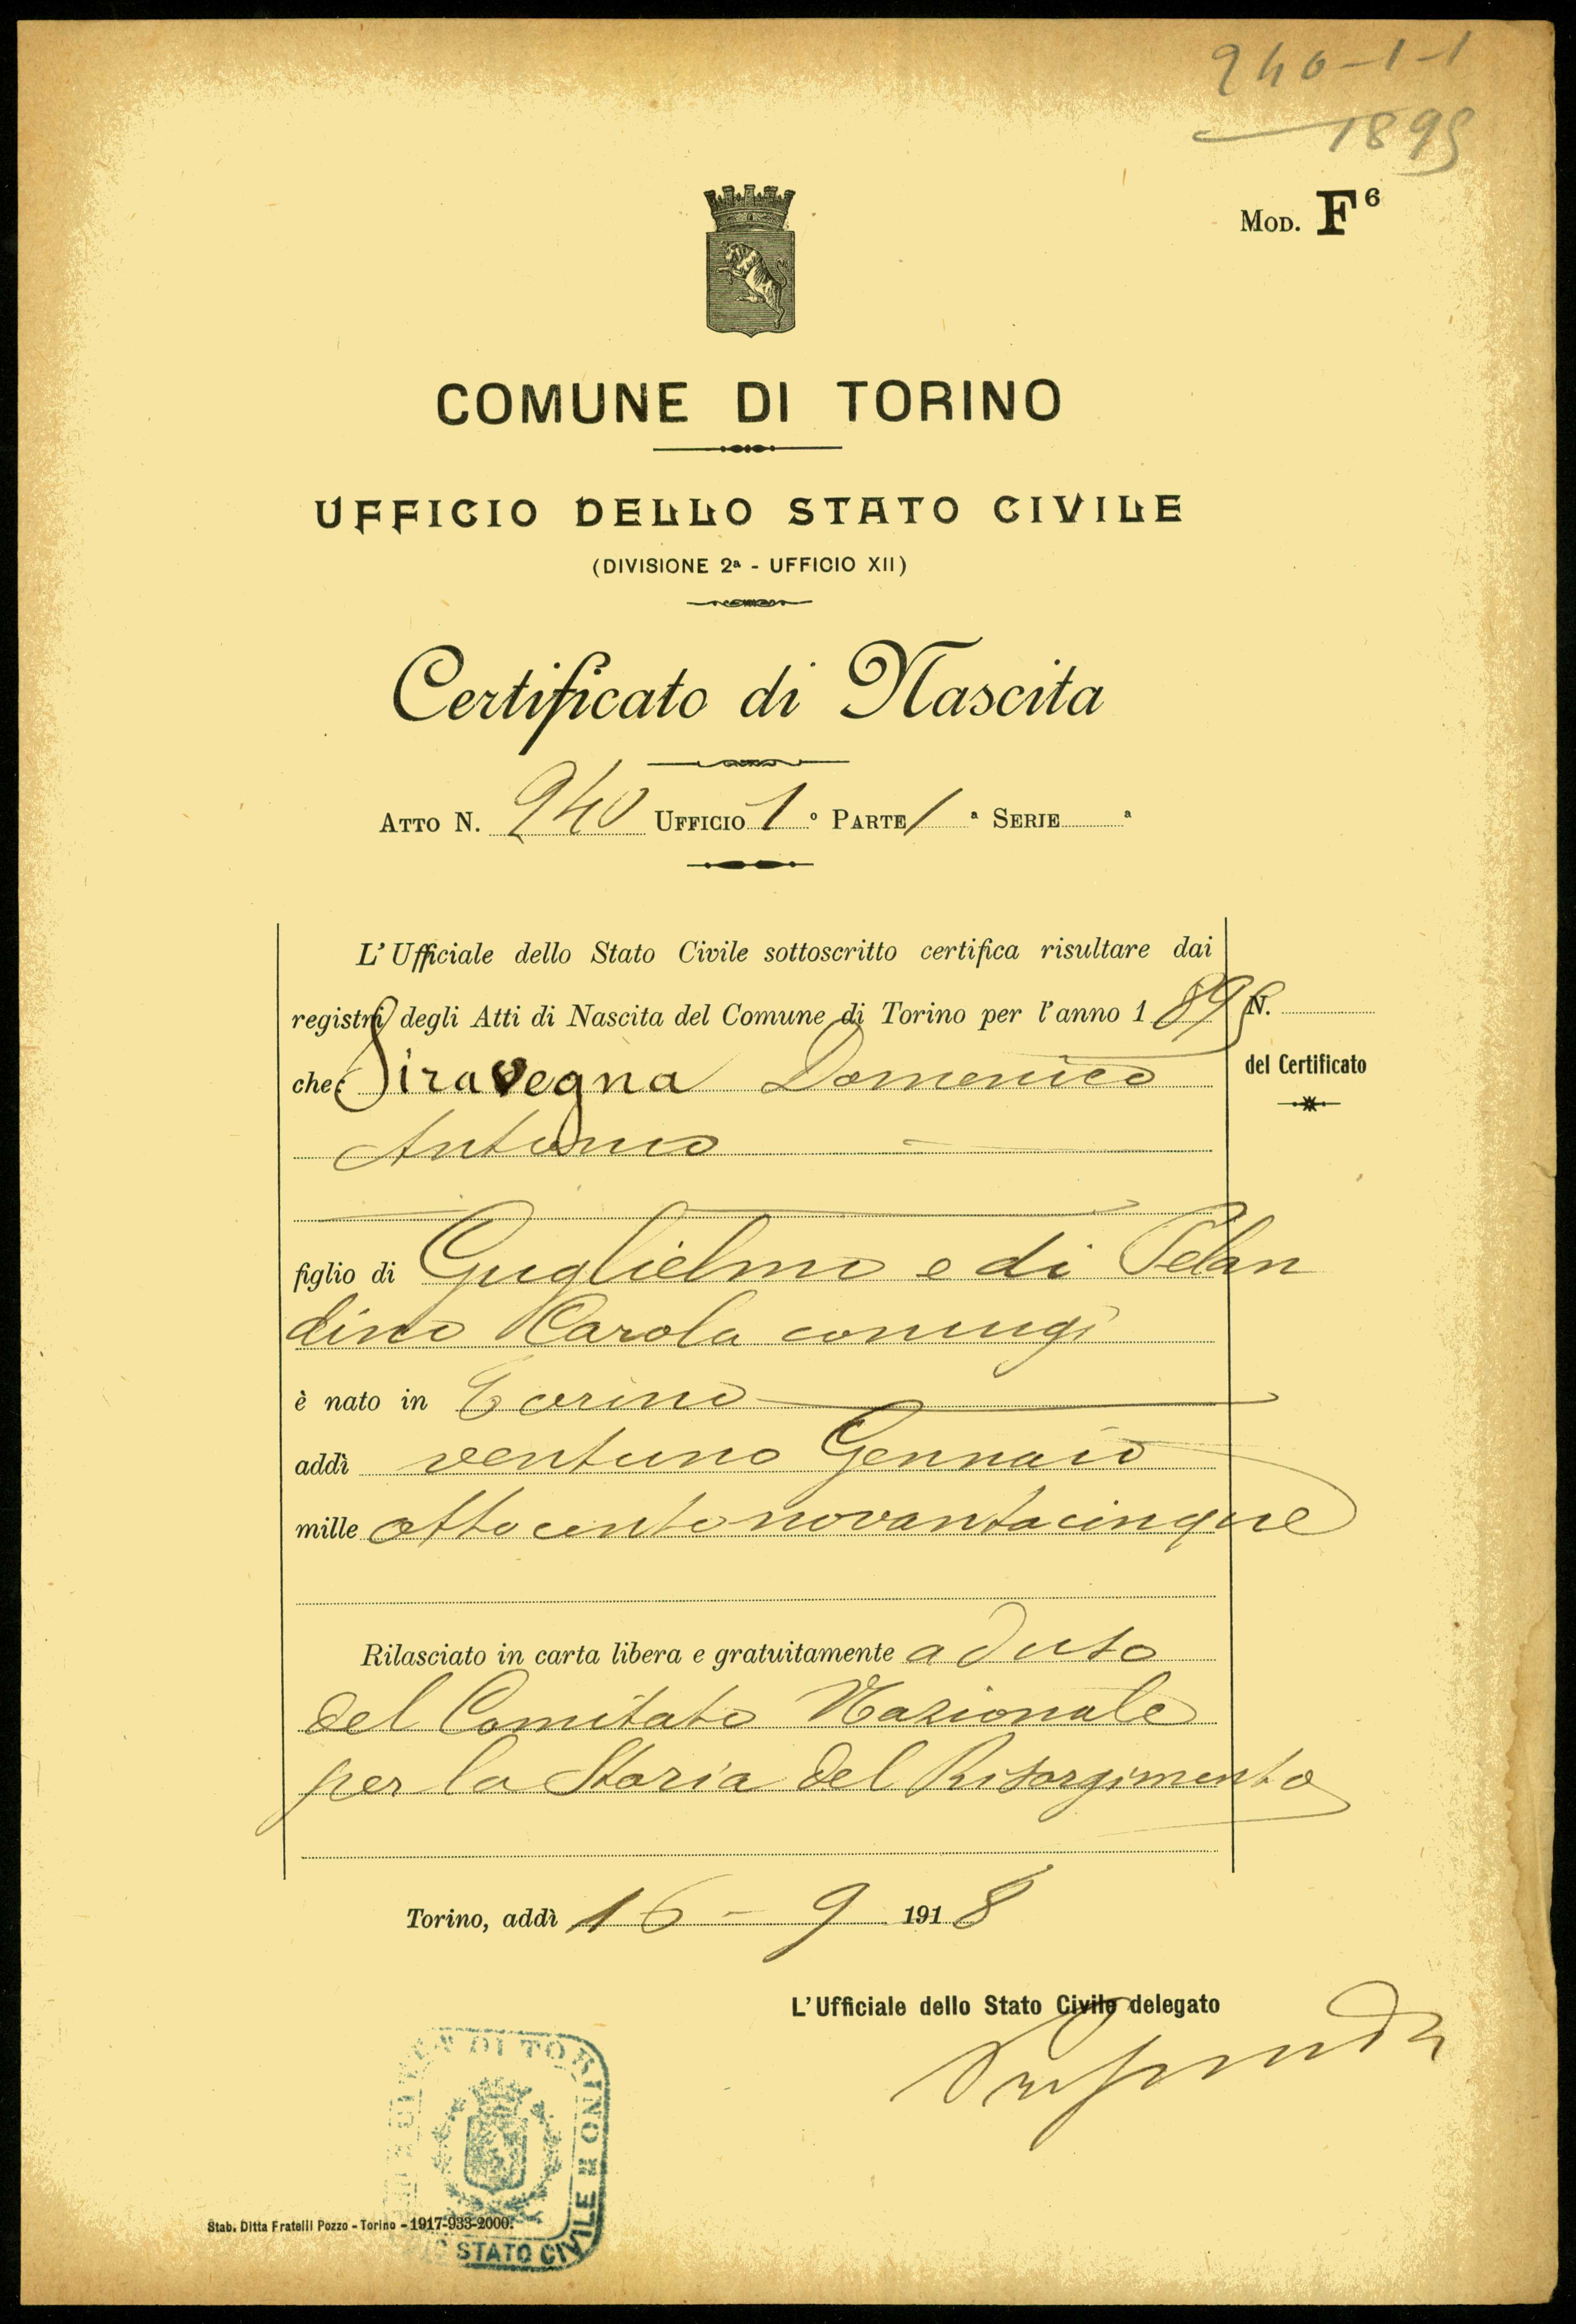 240-1-1
1895
Mod. F6
COMUNE DI TORINO
UFFICIO DELLO STATO CIVILE
(DIVISIONE 2a - UFFICIO XII)
Certificato di Nascita
Atto N. 240 Ufficio 1o Parte 1a Serie a
L'Ufficiale dello Stato Civile sottoscritto certifica risultare dai
registri degli Atti di Nascita del Comune di Torino per l'anno 1895
che Siravegna Domenico
Antonio
figlio di Guglielmo e di Pelan
dino Carola coniugi
è nato in Torino
addì ventuno Gennaio
mille ottocentonovantacinque
Rilasciato in carta libera e gratuitamente ad uso
del Comitato Nazionale
per la Storia del Risorgimento
N.
del Certificato
Torino, addì 16 - 9 1918
L'Ufficiale dello Stato Civile delegato
DI TORINO
STATO CIVILE
Stab. Ditta Fratelli Pozzo - Torino - 1917-933-2000.